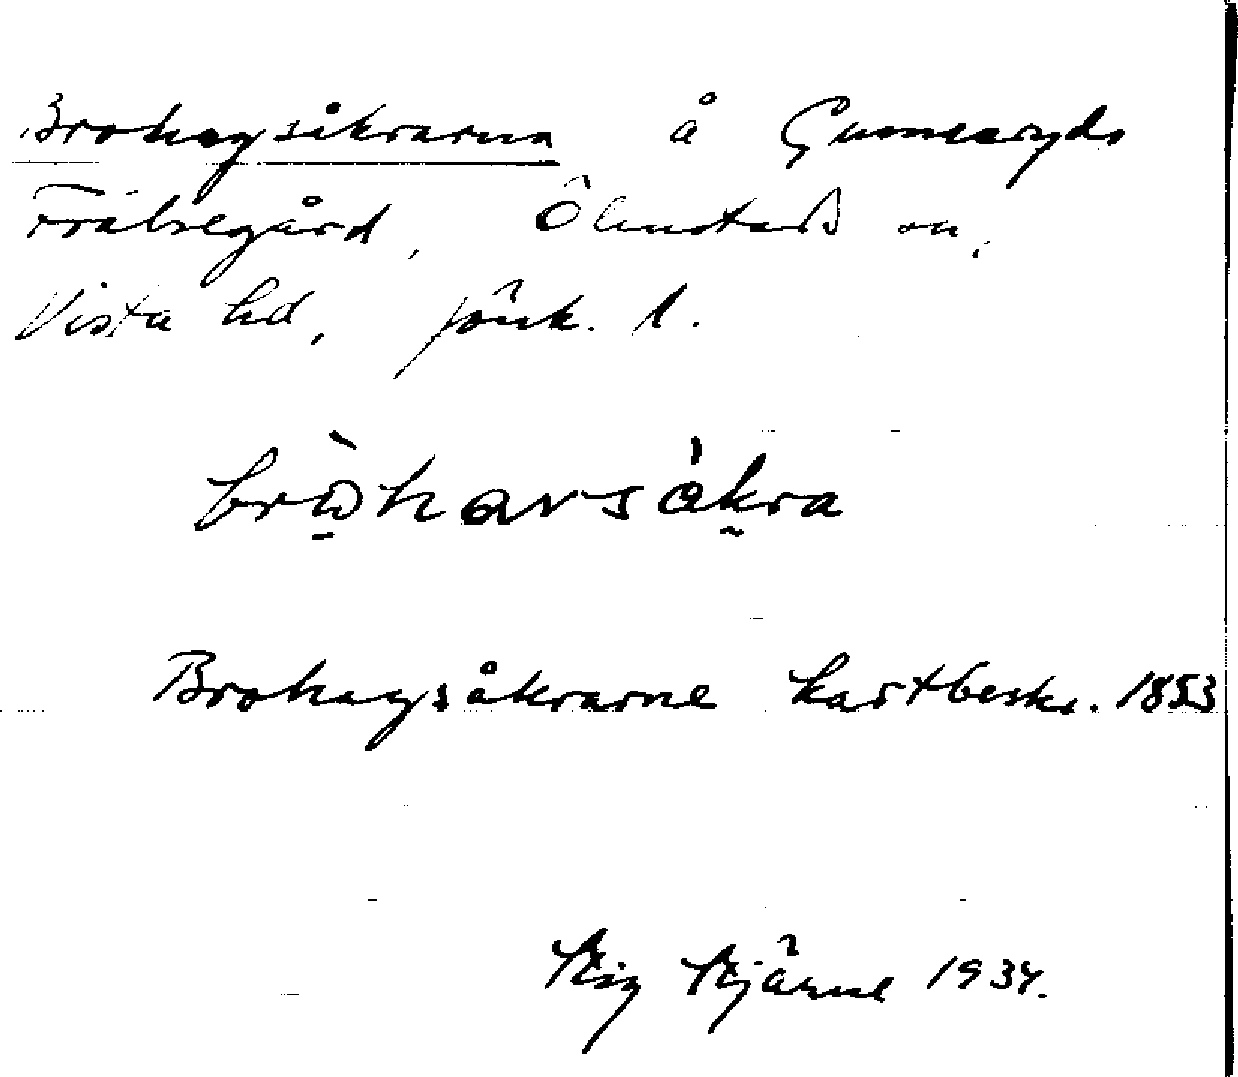 Brohagsåkrarna å Gunnaryds
Frälsegård, Ölmstads sn,
Vista hd, Jönk. l.
bròhavsåkra
Brohagsåkrarne kartbeskr. 1853
Stig Stjärne 1934.